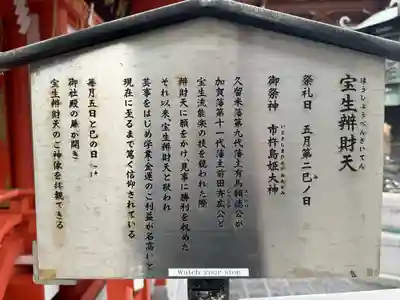 宝生辨財天
ほうしょうべんざいてん
祭礼日 五月第二巳ノ日
み
御祭神 市杵島姫大神
いちきしまひめのおおかみ
久留米藩第九代藩主有馬頼徳公が
よりのり
加賀藩第十一代藩主前田斉広公と
宝生流能楽の技を競われた際
辨財天に願をかけ見事に勝利を収めた
それ以来宝生辨財天と称われ
芸事をはじめ学業金運のご利益が名高いと
現在に至るまで篤く信仰されている
毎月五日と巳の日
御社殿の扉が開き
宝生辨財天のご神像を拝観できる
Watch your step